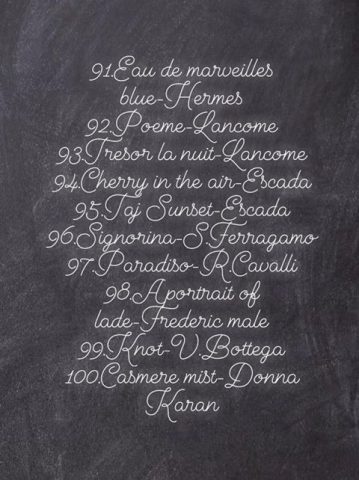 91.Eau de marveilles
blue-Hermes
92.Poeme-Lancome
93.Tresor la nuit-Lancome
94.Cherry in the air-Escada
95.Taj Sunset-Escada
96.Signorina-S.Ferragamo
97.Paradiso-R.Cavalli
98.A portrait of
lade-Frederic male
99.Knot-V.Bottega
100.Casmere mist-Donna
Karan